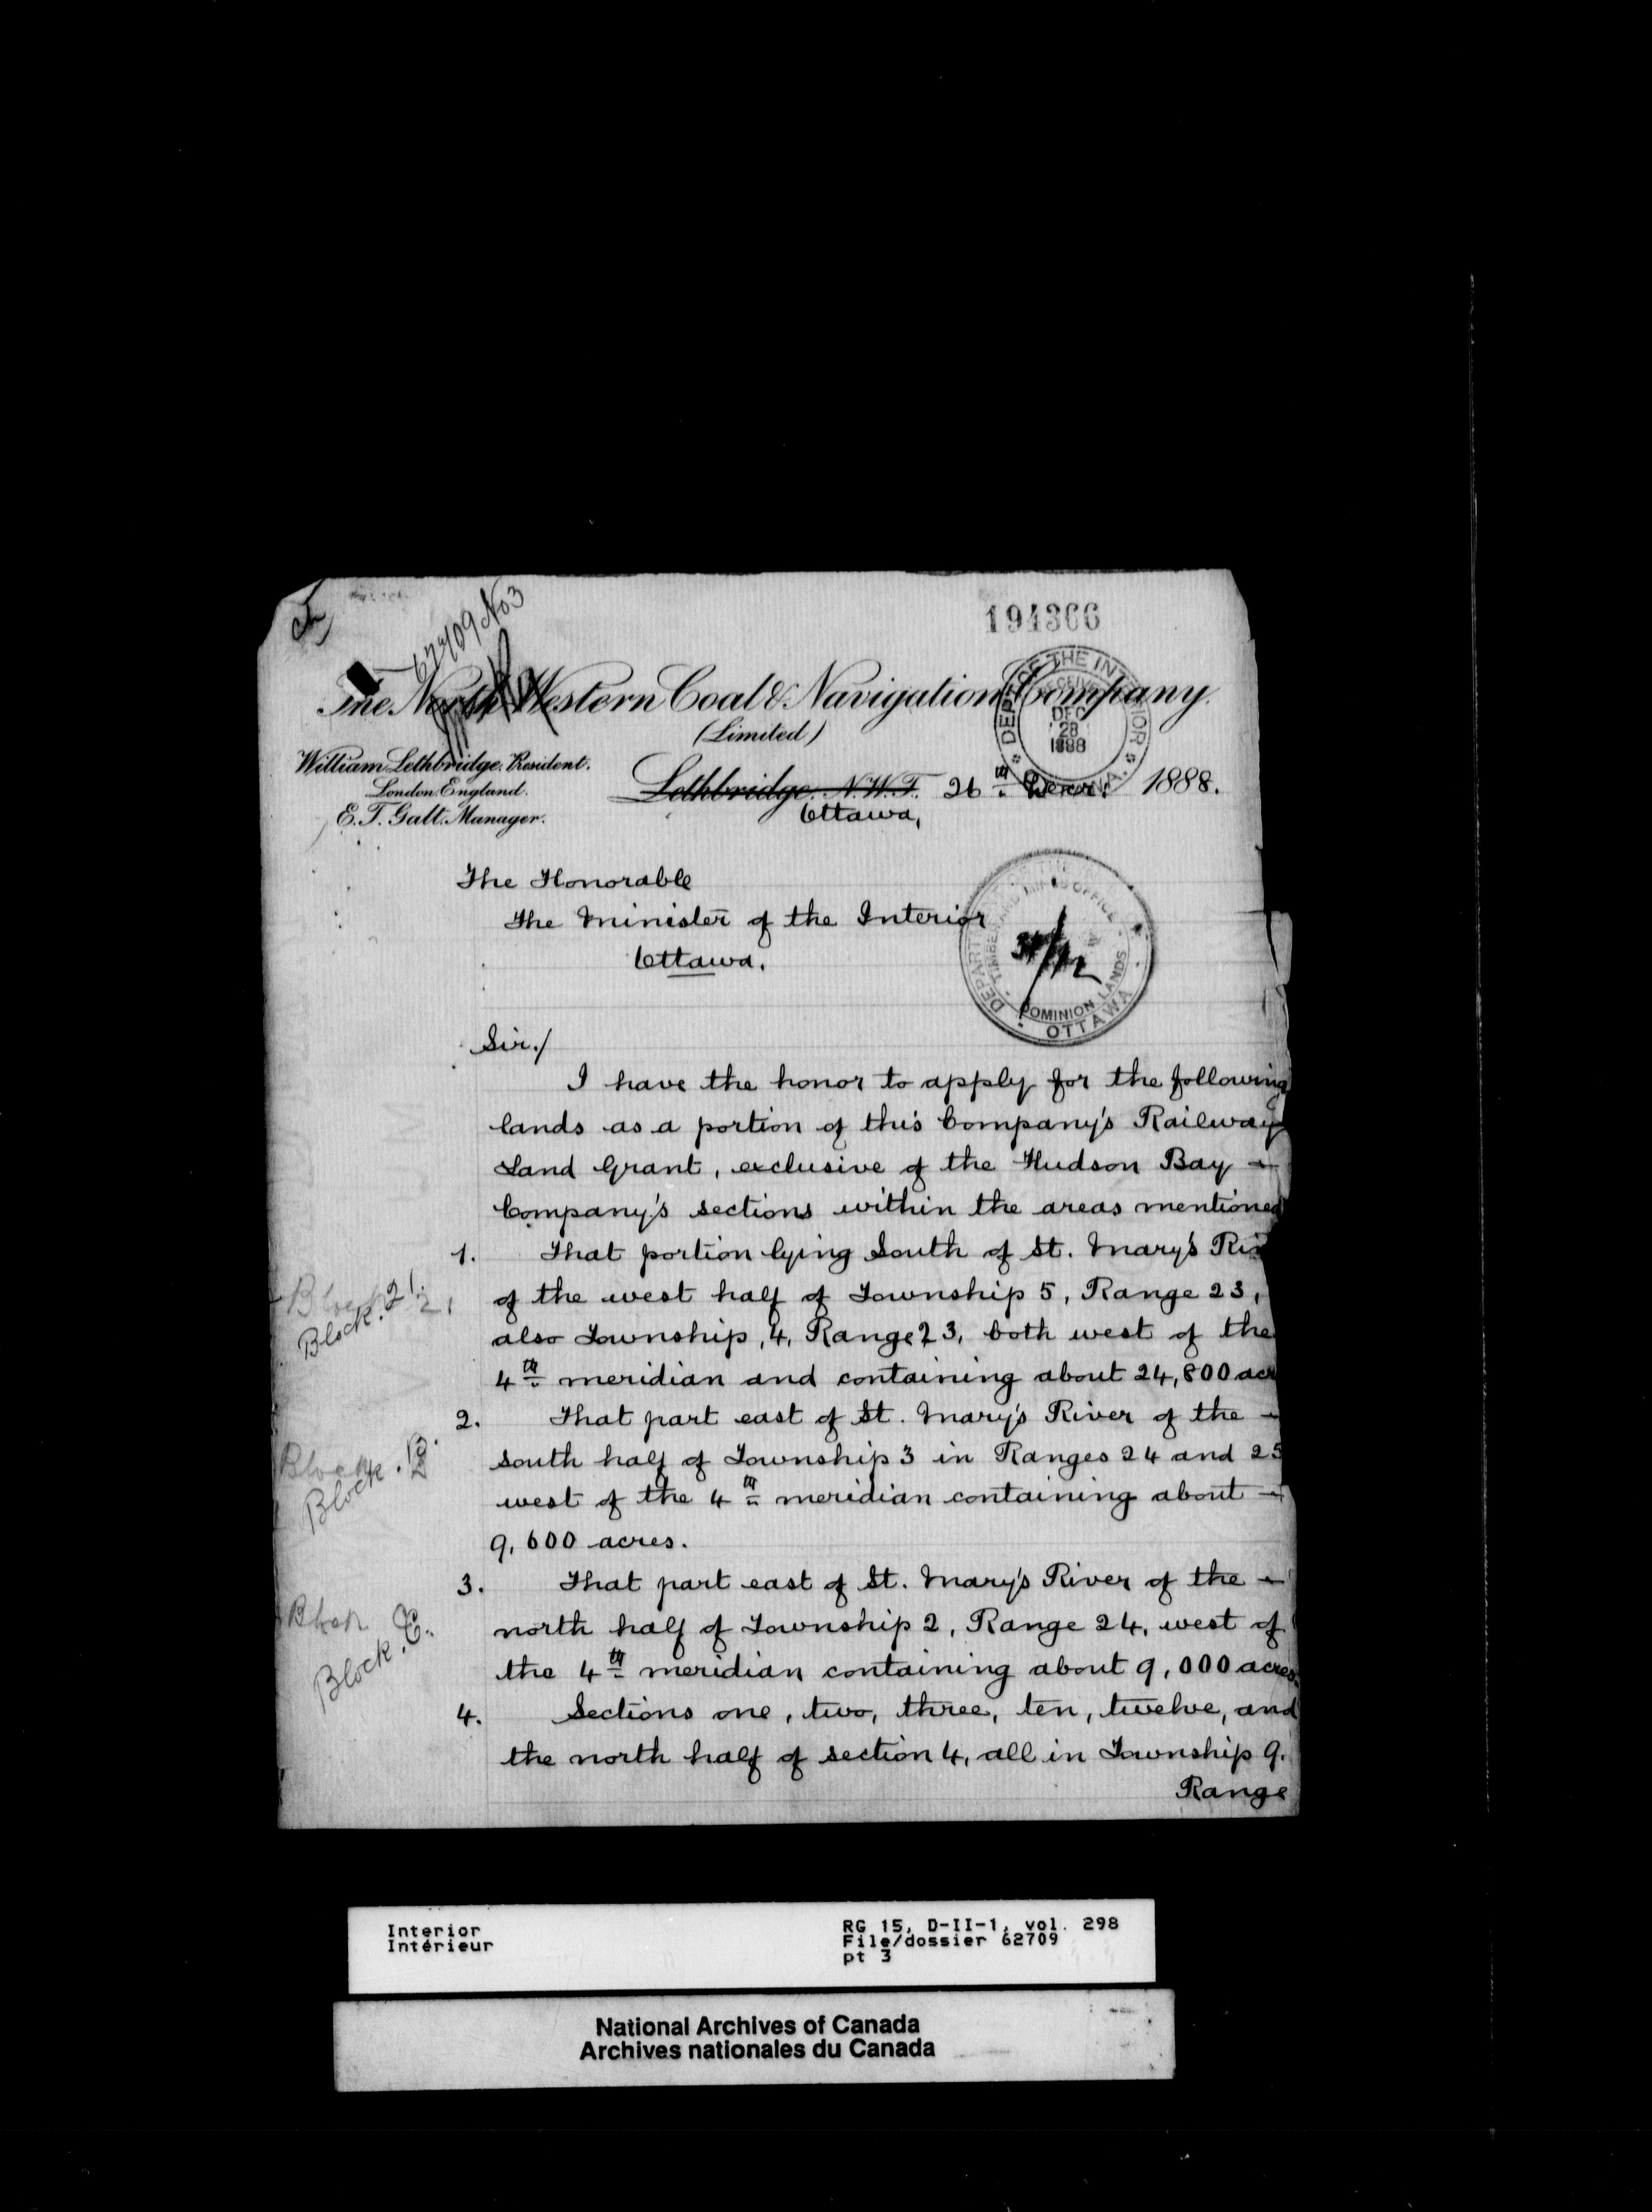 62709 No 3
194366
The North Western Coal & Navigation Company.
(Limited)
DEPT. OF THE INTERIOR
RECEIVED
DEC
28
1888
William Lethbridge. President.
London. England.
E. T. Galt. Manager.
Lethbridge, N.W.T. 26th Decr. 1888.
Ottawa,
The Honorable
The Minister of the Interior
Ottawa.
TIMBER AND MINES OFFICE
31/12
DOMINION LANDS
OTTAWA
Sir./
I have the honor to apply for the following
lands as a portion of this Company's Railway
Land Grant, exclusive of the Hudson Bay
Company's sections within the areas mentioned
1. That portion lying South of St. Mary's Riv
of the west half of Township 5, Range 23,
also Township, 4, Range 23, both west of the
4th meridian and containing about 24,800 acr
Block. 21.
Block. 21
2. That part east of St. Mary's River of the
south half of Township 3 in Ranges 24 and 25
west of the 4th meridian containing about
9,600 acres.
Block
Block. B.
3. That part east of St. Mary's River of the
north half of Township 2, Range 24, west of
the 4th meridian containing about 9,000 acres.
Block
Block. C.
4. Sections one, two, three, ten, twelve, and
the north half of section 4, all in Township 9.
Range
Interior
Intérieur
RG 15, D-II-1, vol. 298
File/dossier 62709
pt 3
National Archives of Canada
Archives nationales du Canada